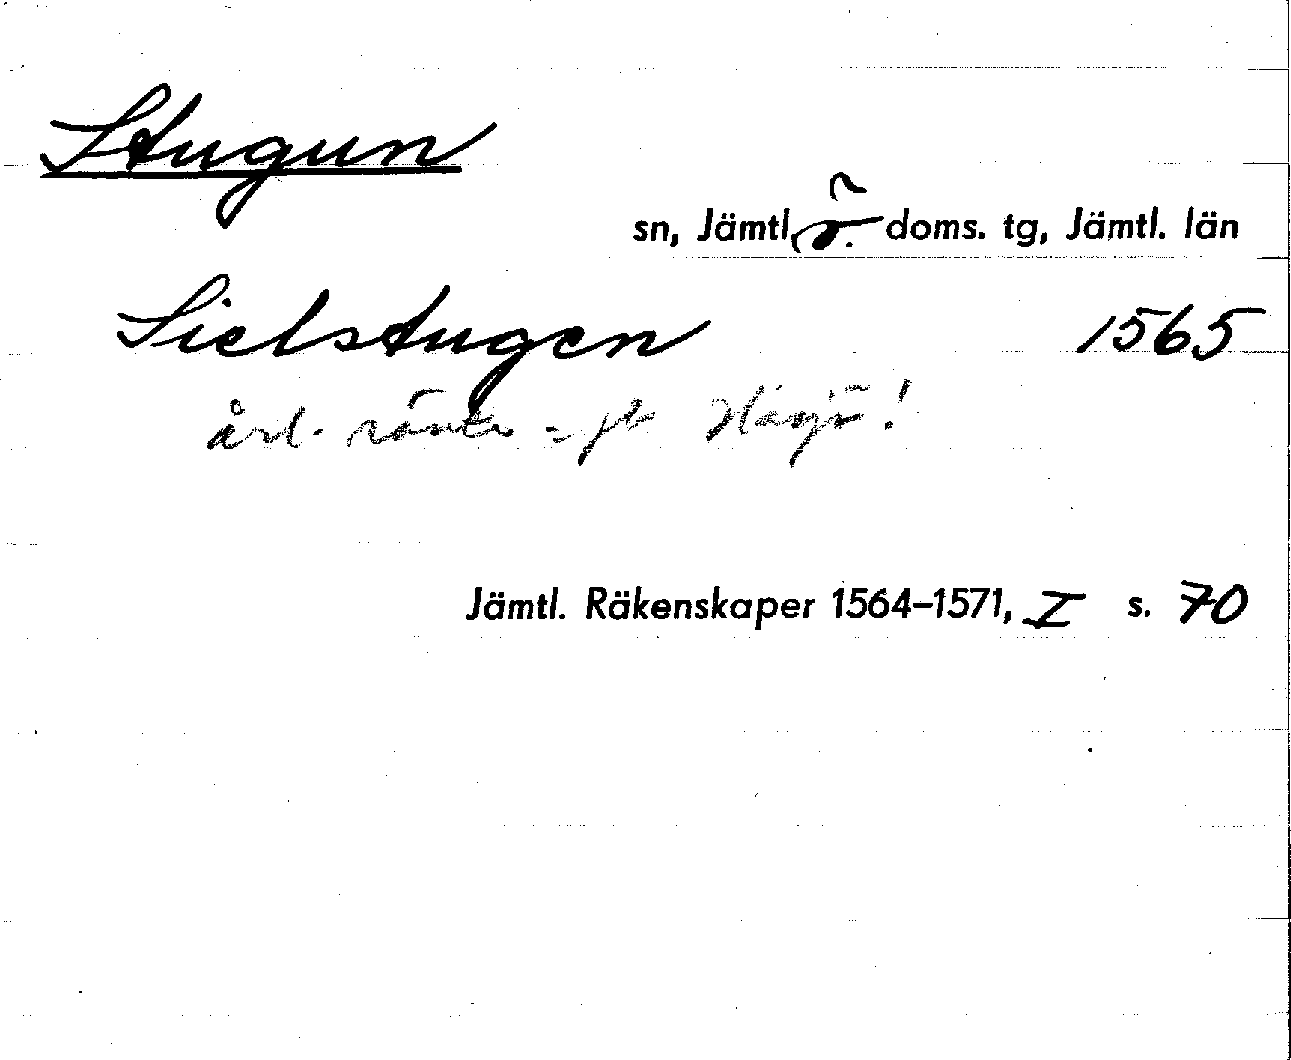 Stugun
sn, Jämtl. ö. doms. tg, Jämtl. län
Sielstugen 1565
årl. ränta - jb Håsjö!
Jämtl. Räkenskaper 1564–1571, I s. 70